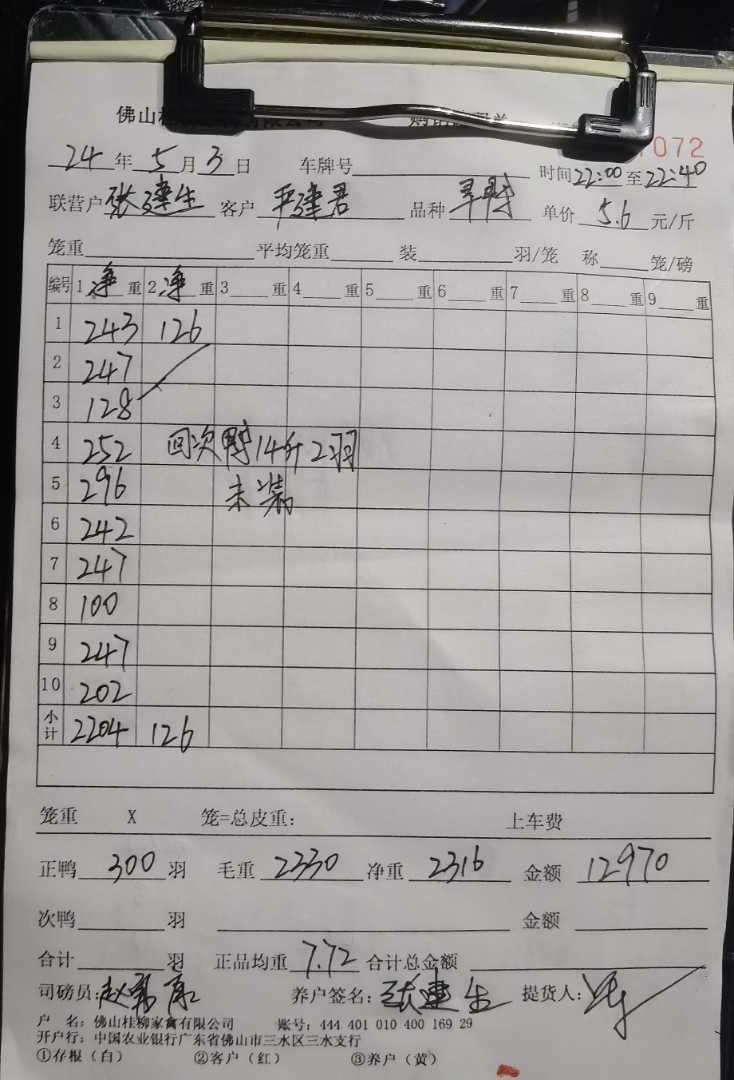 佛山
072
24 年 5 月 3 日 车牌号 时间 22:00 至 22:40
联营户 张建生 客户 严建君 品种 单价 5.6 元/斤
笼重 平均笼重 装 羽/笼 称 笼/磅
编号 1 净 重 2 净 重 3 重 4 重 5 重 6 重 7 重 8 重 9 重
1 243 126
2 247
3 128
4 252 回次鸭14斤2羽
5 296 未装
6 242
7 247
8 100
9 247
10 202
小计 2204 126
笼重 X 笼=总皮重: 上车费
正鸭 300 羽 毛重 2330 净重 2316 金额 12970
次鸭 羽 金额
合计 羽 正品均重 7.72 合计总金额
司磅员: 养户签名: 张建生 提货人:
户 名: 佛山桂柳家禽有限公司 账号: 444 401 010 400 169 29
开户行: 中国农业银行广东省佛山市三水区三水支行
①存根（白） ②客户（红） ③养户（黄）